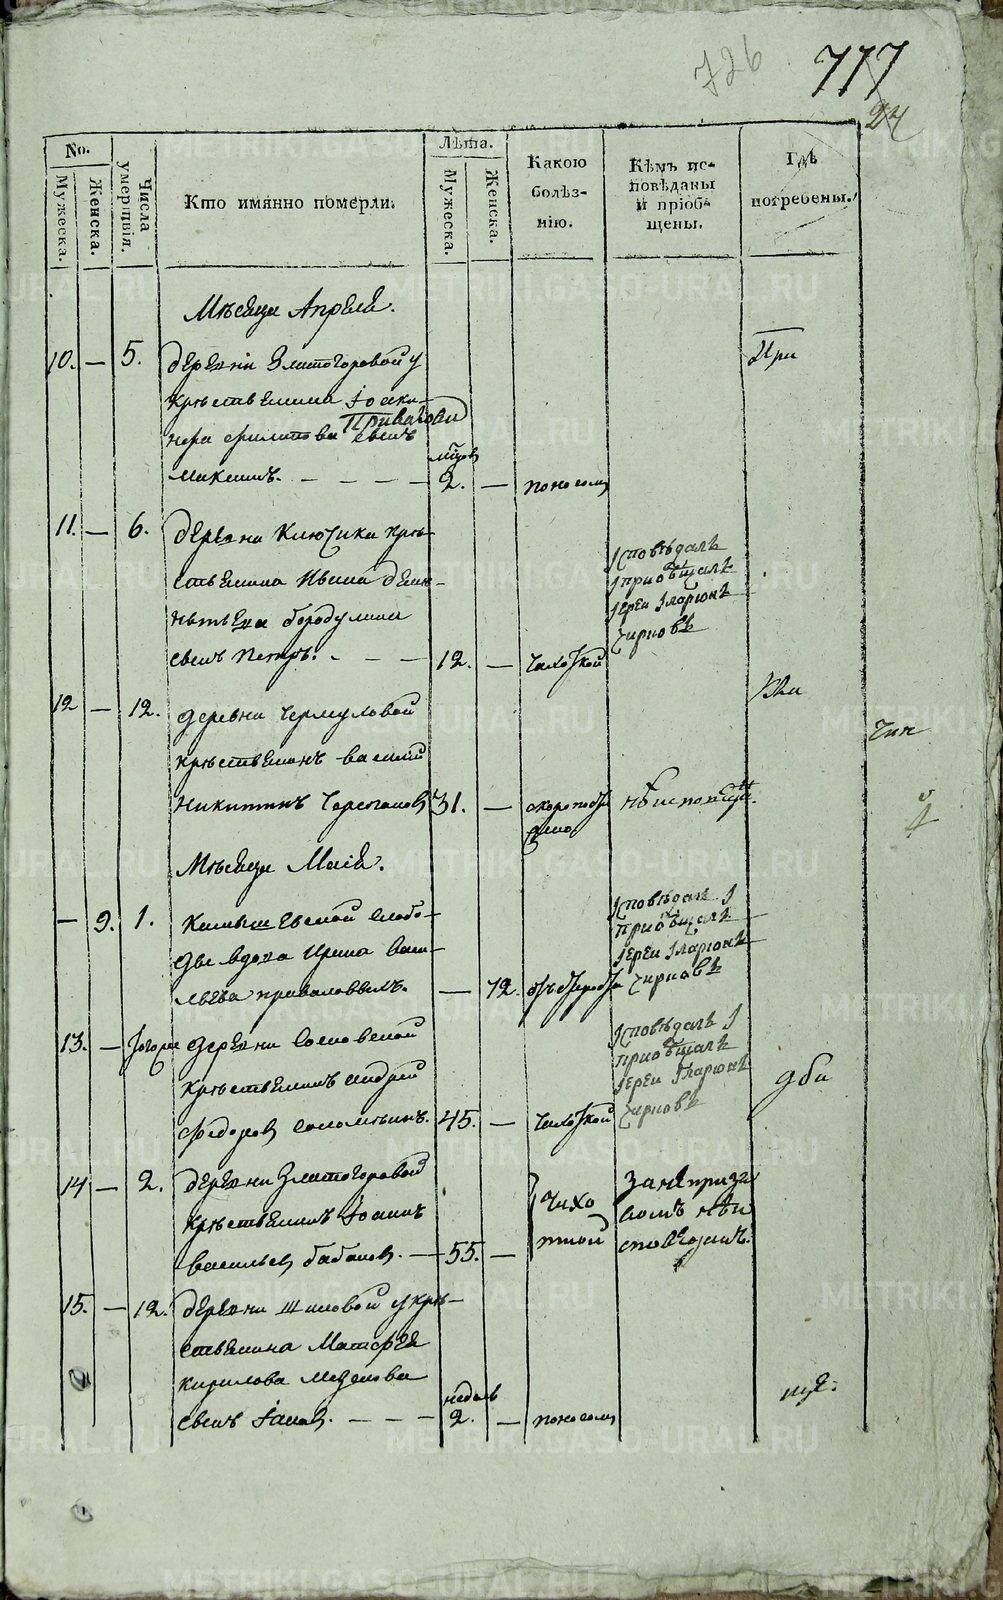 726
777
24
No.
Лѣта.
Мужеска.
Женска.
Числа умертвія.
Кто имянно померли.
Мужеска.
Женска.
Какою болѣз-
нію.
Кѣмъ ис-
повѣданы
и пріоб-
щены.
Гдѣ
погребены.
Мѣсяца Апреля.
10. — 5. деревни Златогоровой у
При
крестьянина
Привалова
сынъ
мцов
Максимъ. — — — — 2. — поносомъ
11. — 6. деревни Ключика кре-
стьянина Ивана Деме-
нтьева Бородулина
сынъ Петръ. — — — 12. — чахоткой
Исповѣдалъ
и приобщалъ
Іерей Іларіонъ
Чирковъ
12 — 12. деревни Чермуловой
Вла
крестьянинъ Василий
чин
Никитинъ 31. — скоропост
жно
Мѣсяца Маія.
— 9. 1. Камышевской слобо-
ды вдова Ирина Васи-
льева Приваловыхъ. — 72
Исповѣдалъ и
приобщалъ
Іерей Іларіонъ
Чирковъ
13. — тогоже деревни Сосновской
крестьянинъ Андрей
Федоров Соломеинъ. 45. — чахоткой
Исповѣдалъ и
приобщалъ
Іерей Іларіонъ
Чирковъ
дби
14 — 2. деревни Златогоровой
крестьянинъ Іоаннъ
Васильев Бабинов. — 55. —
чахо
ткой
за непризы
вомъ неи
споведанъ.
15. — 12. деревни Шиловой у кре-
стьянина Матфея
Кирилова Мезенова
недель
сынъ Іаков. — — — 2. — поносомъ
ще:
METRIKI.GASO-URAL.RU